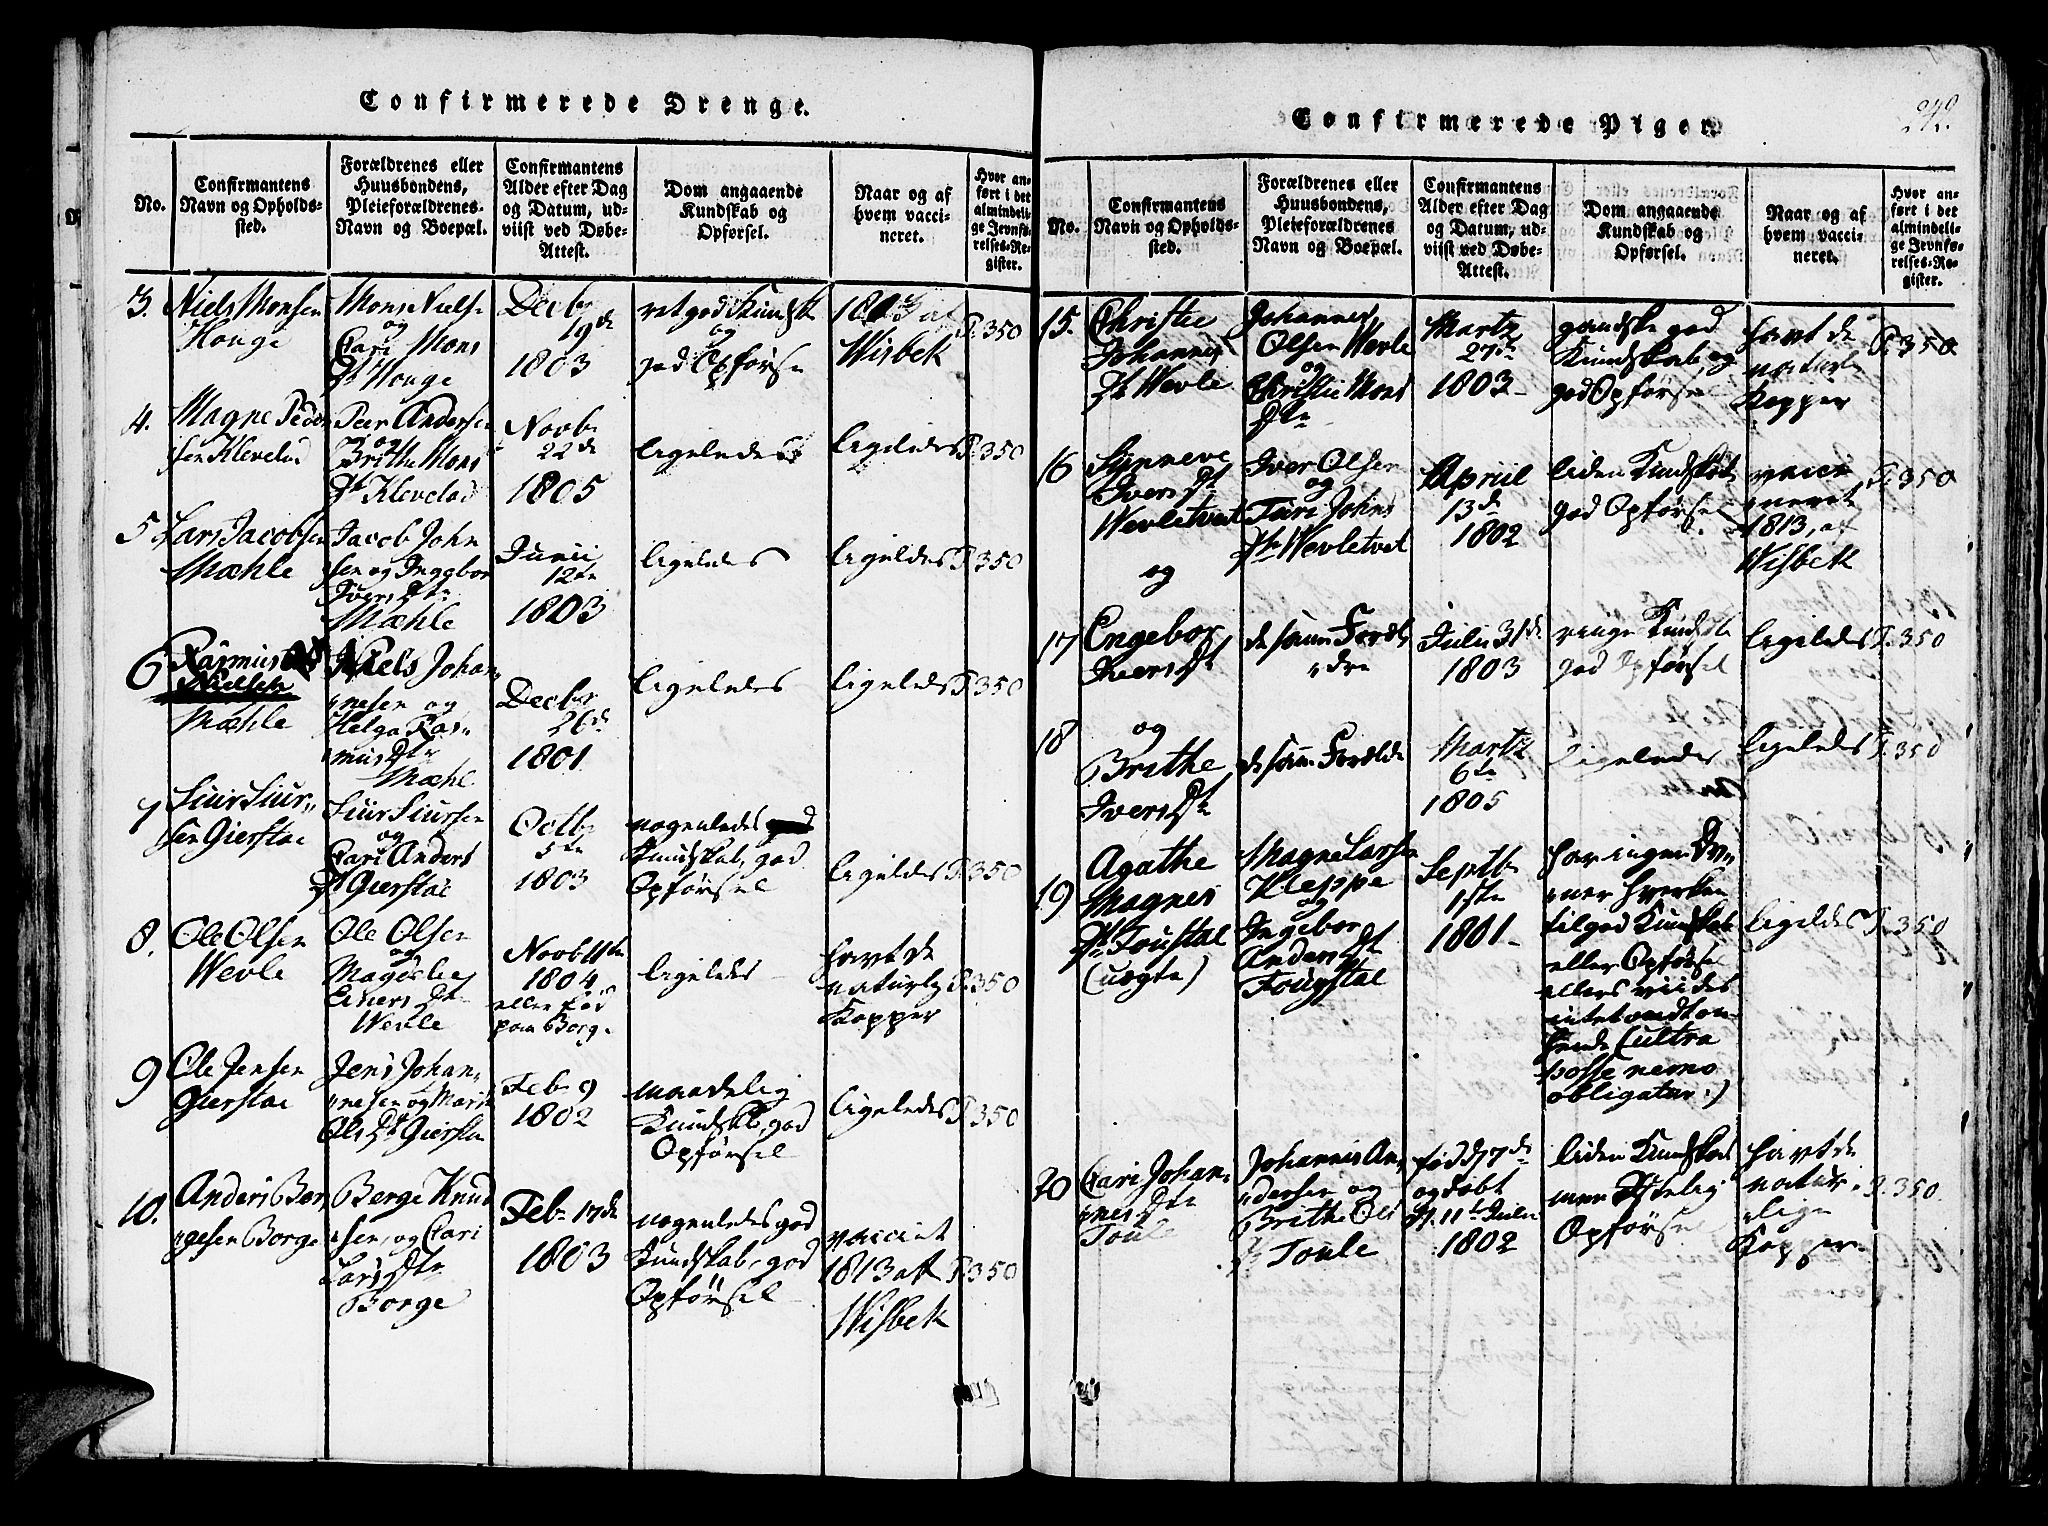 Confirmerede Drenge.
No.
Confirmantens
Navn og Opholds-
sted.
Forældrenes eller
Huusbondens,
Pleieforældrenes
Navn og Boepæl.
Confirmantens
Alder efter Dag
og Datum, ud-
viist ved Døbe-
Attest.
Dom angaaende
Kundskab og
Opførsel.
Naar og af
hvem vacci-
neret.
Hvor an-
ført i det
almindeli-
ge Jevnfø-
relses-Re-
gister.
3.
Niels Monsen
Houge
Mons Niels
og
Cari Mons
Dt Houge
Decbr
19de
1803
ret god Kundsk
og
god Opførse
af
Wisbek
P. 350
4.
Magne Peder
sen Klevelad
Peer Andersen
og
Brithe Mons
Dt Klevelad
Novbr
22de
1805
ligeledes
ligeledes
P. 350
5
Lars Jacobsen
Mæhle
Jacob John
sen og Inggbor
Ivers Dtr
Mæhle
Junii
12te
1803
ligeledes
ligeledes
P. 350
6
Rasmus
Nielsen
Mæhle
Niels Johan
nesen og
Helga Ras
mus Dtr
Mæhle
Decbr
26de
1801
ligeledes
ligeledes
P. 350
7
Siur Siur
sen Gierstae
Siur Siursen
og
Cari Anders
Dt Gierstae
Octbr
5te
1803
nogenledes
Kundskab, god
Opførsel
ligeledes
P. 350
8.
Ole Olsen
Wevle
Ole Olsen
og
Magdeles
Einers Dtr
Wevle
Novb 11te
1804
eller fød
paa Borge
ligeledes
havt de
naturlg
Kopper
P. 350
9
Ole Jensen
Gierstae
Jens Johan
nesen og Marit
Ols Dt Gierstae
Feb 9
1802
maadelig
Kundsk, god
Opførsel
ligeledes
P. 350
10.
Anders Bør
gesen Borge
Børge Knud
sen, og Cari
Lars Dtr
Borge
Feb 17de
1803
nogenledes god
Kundskab, god
Opførsel
vaccint
1813 af
Wisbek
P. 350
249.
Confirmerede Piger.
No.
Confirmantens
Navn og Opholds-
sted.
Forældrenes eller
Huusbondens,
Pleieforældrenes
Navn og Boepæl.
Confirmantens
Alder efter Dag
og Datum, ud-
viist ved Døbe-
Attest.
Dom angaaende
Kundskab og
Opførsel.
Naar og af
hvem vacci-
neret.
Hvor an-
ført i det
almindeli-
ge Jevnfø-
relses-Re-
gister.
15.
Christie
Johannis
Dt Wevle
Johannes
Olsen Wevle
og
Christie Mons
Dtr
Martz
27de
1803
gandske god
Kundskab, og
god Opførsel
havt de
naturl
Kopper
P. 350
16
Synneve
Ivers Dt
Wevletvet
Iver Olsen
og
Turi Johns
Dtr Wevletvet
Apriil
13de
1802
liden Kundskab
god Opførsel
vacci
neret
1813, af
Wisbek
P. 350
og
17
Engebor
Ivers Dt
de samme Foræl
dre
Julii 31de
1803
ringe Kundsk
god Opførsel
ligeledes
P. 350
og
18
Brithe
Ivers Dtr
de samme Forældre
Martz
6te
1805
ligeledes
ligeledes
P. 350
19
Agathe
Magnes
Dt Foustae
(uægte)
Magne Larsen
Kleppe
og
Ingebor
Anders Dt
Fougstae
Septbr
1ste
1801
har ingen
hverken
til god Kundskab
eller Opførsel
ellers
(ultra
posse nemo
obligatur:)
ligeledes
P. 350
20
Cari Johan
nes Dtr
Toule
Johannis An
dersen og
Brithe Ols
Dt Toule
fød d 7de
og døbt
d. 11te Julii
1802
liden Kundskab
men
Opførsel
havt de
natur
lige
Kopper
P. 350